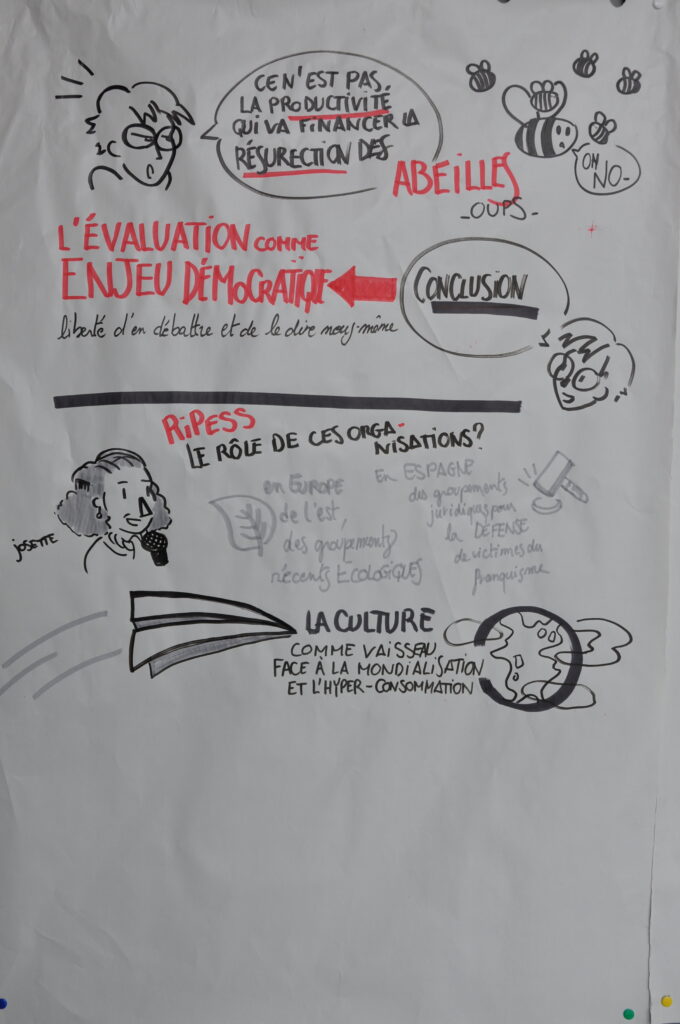 CE N'EST PAS
LA PRODUCTIVITÉ
QUI VA FINANCER LA
RÉSURECTION DES
ABEILLES
_OUPS_
OH
NO_
L'ÉVALUATION COMME
ENJEU DÉMOCRATIQUE
CONCLUSION
liberté d'en débattre et de le dire nous-même
RiPESS
LE RÔLE DE CES ORGA-
NISATIONS?
josette
en EUROPE
de l'est,
des groupements
récents ÉCOLOGIQUES
en ESPAGNE
des groupements
juridiques pour
la DÉFENSE
de victimes du
franquisme
LA CULTURE
COMME VAISSEAU
FACE À LA MONDIALISATION
ET L'HYPER-CONSOMMATION